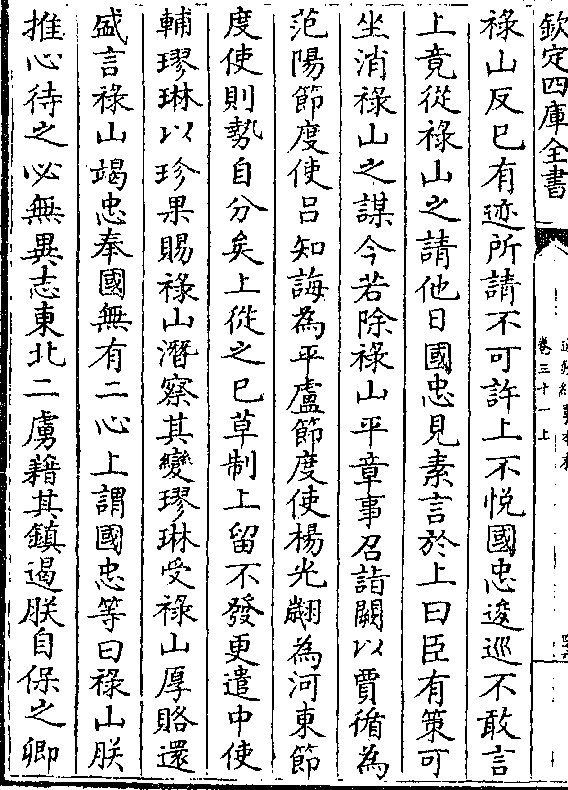 欽定四庫全書
卷三十一上
祿山反已有迹所請不可許上不悅國忠逡巡不敢言
上竟從祿山之請他日國忠見素言於上曰臣有策可
坐消祿山之謀今若除祿山平章事召詣闕以賈循為
范陽節度使吕知誨為平盧節度使楊光翽為河東節
度使則勢自分矣上從之已草制上留不發更遣中使
輔璆琳以珍果賜祿山潛察其變璆琳受祿山厚賂還
盛言祿山竭忠奉國無有二心上謂國忠等曰祿山朕
推心待之必無異志東北二虜藉其鎮遏朕自保之卿